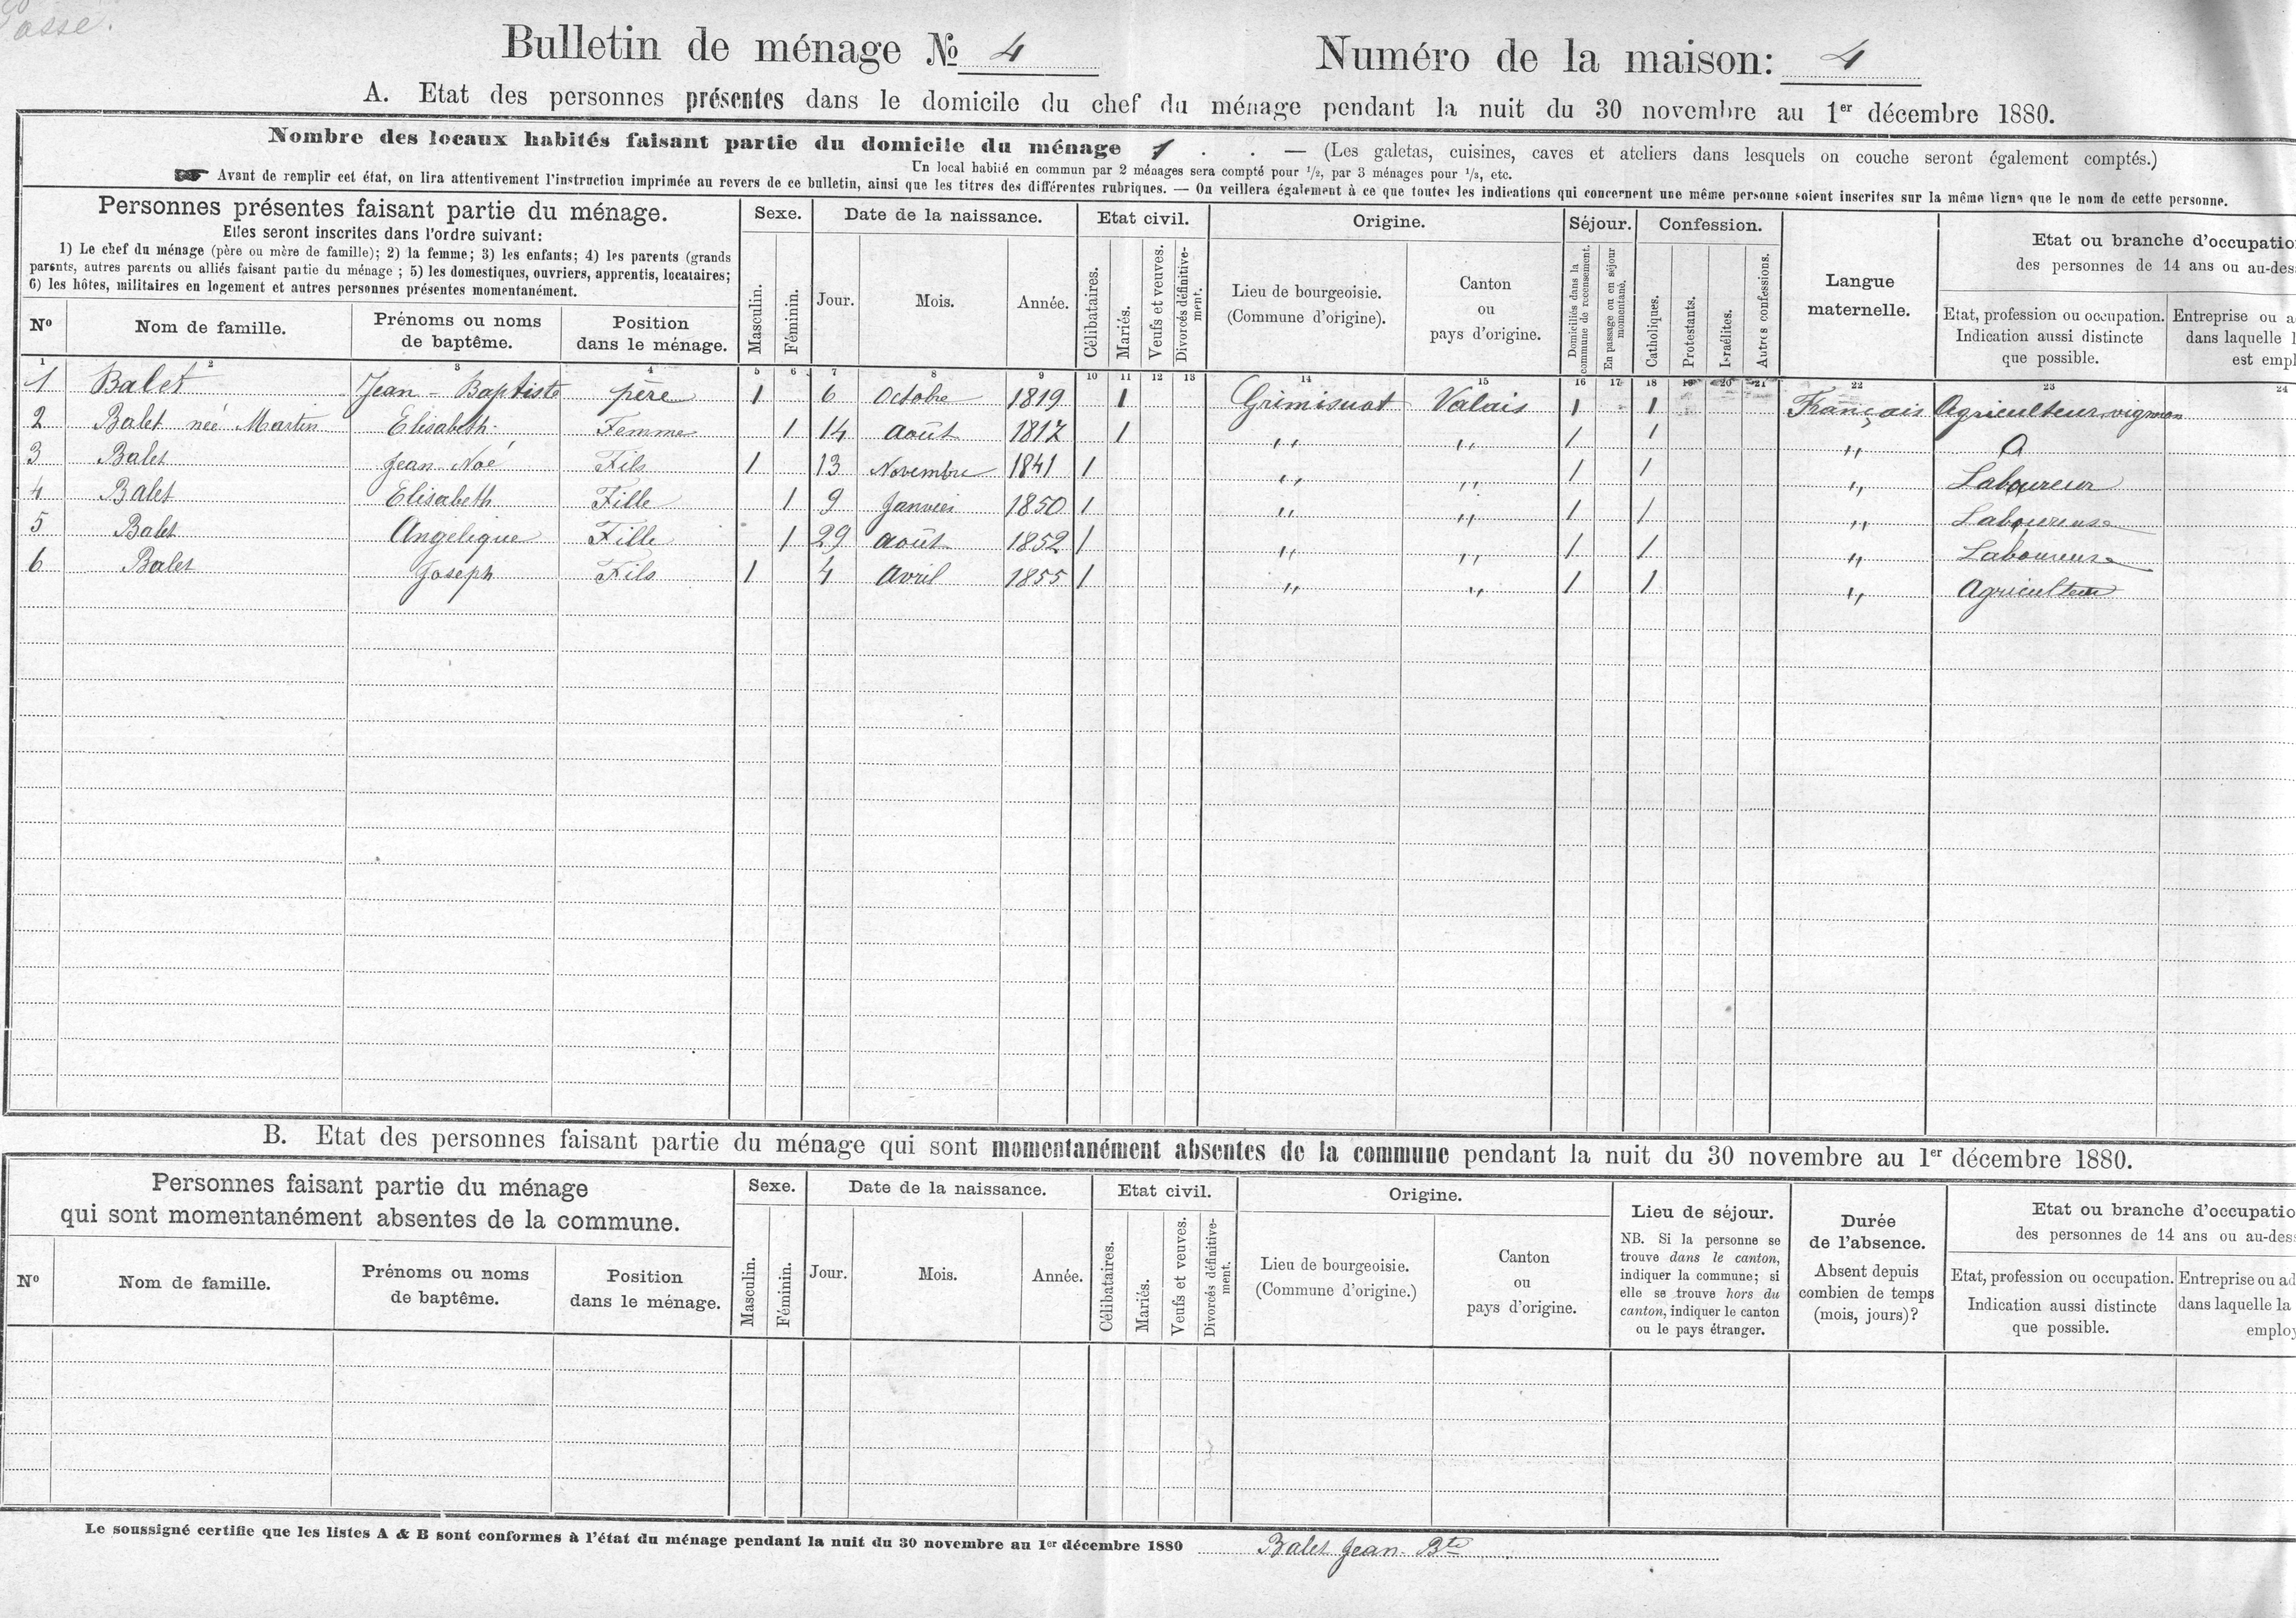 Passé.
Bulletin de ménage № 4 Numéro de la maison: 4
A. Etat des personnes présentes dans le domicile du chef du ménage pendant la nuit du 30 novembre au 1er décembre 1880.
Nombre des locaux habités faisant partie du domicile du ménage 1 . . — (Les galetas, cuisines, caves et ateliers dans lesquels on couche seront également comptés.)
Un local habité en commun par 2 ménages sera compté pour 1/2, par 3 ménages pour 1/3, etc.
☛ Avant de remplir cet état, on lira attentivement l'instruction imprimée au revers de ce bulletin, ainsi que les titres des différentes rubriques. — On veillera également à ce que toutes les indications qui concernent une même personne soient inscrites sur la même ligne que le nom de cette personne.
Personnes présentes faisant partie du ménage.
Elles seront inscrites dans l'ordre suivant:
1) Le chef du ménage (père ou mère de famille); 2) la femme; 3) les enfants; 4) les parents (grands
parents, autres parents ou alliés faisant partie du ménage ; 5) les domestiques, ouvriers, apprentis, locataires;
6) les hôtes, militaires en logement et autres personnes présentes momentanément.
Nº
Nom de famille.
Prénoms ou noms
de baptême.
Position
dans le ménage.
Sexe.
Masculin.
Féminin.
Date de la naissance.
Jour.
Mois.
Année.
Etat civil.
Célibataires.
Mariés.
Veufs et veuves.
Divorcés définitive-
ment.
Origine.
Lieu de bourgeoisie.
(Commune d'origine).
Canton
ou
pays d'origine.
Séjour.
Domiciliés dans la
commune de recensement.
En passage ou en séjour
momentané.
Confession.
Catholiques.
Protestants.
Israélites.
Autres confessions.
Langue
maternelle.
Etat ou branche d'occupatio
des personnes de 14 ans ou au-des
Etat, profession ou occupation.
Indication aussi distincte
que possible.
Entreprise ou a
dans laquelle l
est empl
1 2 3 4 5 6 7 8 9 10 11 12 13 14 15 16 17 18 19 20 21 22 23 24
1 Balet Jean-Baptiste père 1 6 Octobre 1819 1 Grimisuat Valais 1 1 Français Agriculteur vigneron
2 Balet née Martin Elisabeth Femme 1 14 Août 1817 1 " " 1 1 "
3 Balet Jean Noé Fils 1 13 Novembre 1841 1 " " 1 1 " Laboureur
4 Balet Elisabeth Fille 1 9 Janvier 1850 1 " " 1 1 " Laboureuse
5 Balet Angélique Fille 1 29 Août 1852 1 " " 1 1 " Laboureuse
6 Balet Joseph Fils 1 4 Avril 1855 1 " " 1 1 " Agriculteur
B. Etat des personnes faisant partie du ménage qui sont momentanément absentes de la commune pendant la nuit du 30 novembre au 1er décembre 1880.
Personnes faisant partie du ménage
qui sont momentanément absentes de la commune.
Nº
Nom de famille.
Prénoms ou noms
de baptême.
Position
dans le ménage.
Sexe.
Masculin.
Féminin.
Date de la naissance.
Jour.
Mois.
Année.
Etat civil.
Célibataires.
Mariés.
Veufs et veuves.
Divorcés définitive-
ment.
Origine.
Lieu de bourgeoisie.
(Commune d'origine.)
Canton
ou
pays d'origine.
Lieu de séjour.
NB. Si la personne se
trouve dans le canton,
indiquer la commune; si
elle se trouve hors du
canton, indiquer le canton
ou le pays étranger.
Durée
de l'absence.
Absent depuis
combien de temps
(mois, jours)?
Etat ou branche d'occupatio
des personnes de 14 ans ou au-des
Etat, profession ou occupation.
Indication aussi distincte
que possible.
Entreprise ou ad
dans laquelle la
employ
Le soussigné certifie que les listes A & B sont conformes à l'état du ménage pendant la nuit du 30 novembre au 1er décembre 1880 Balet Jean-Bte